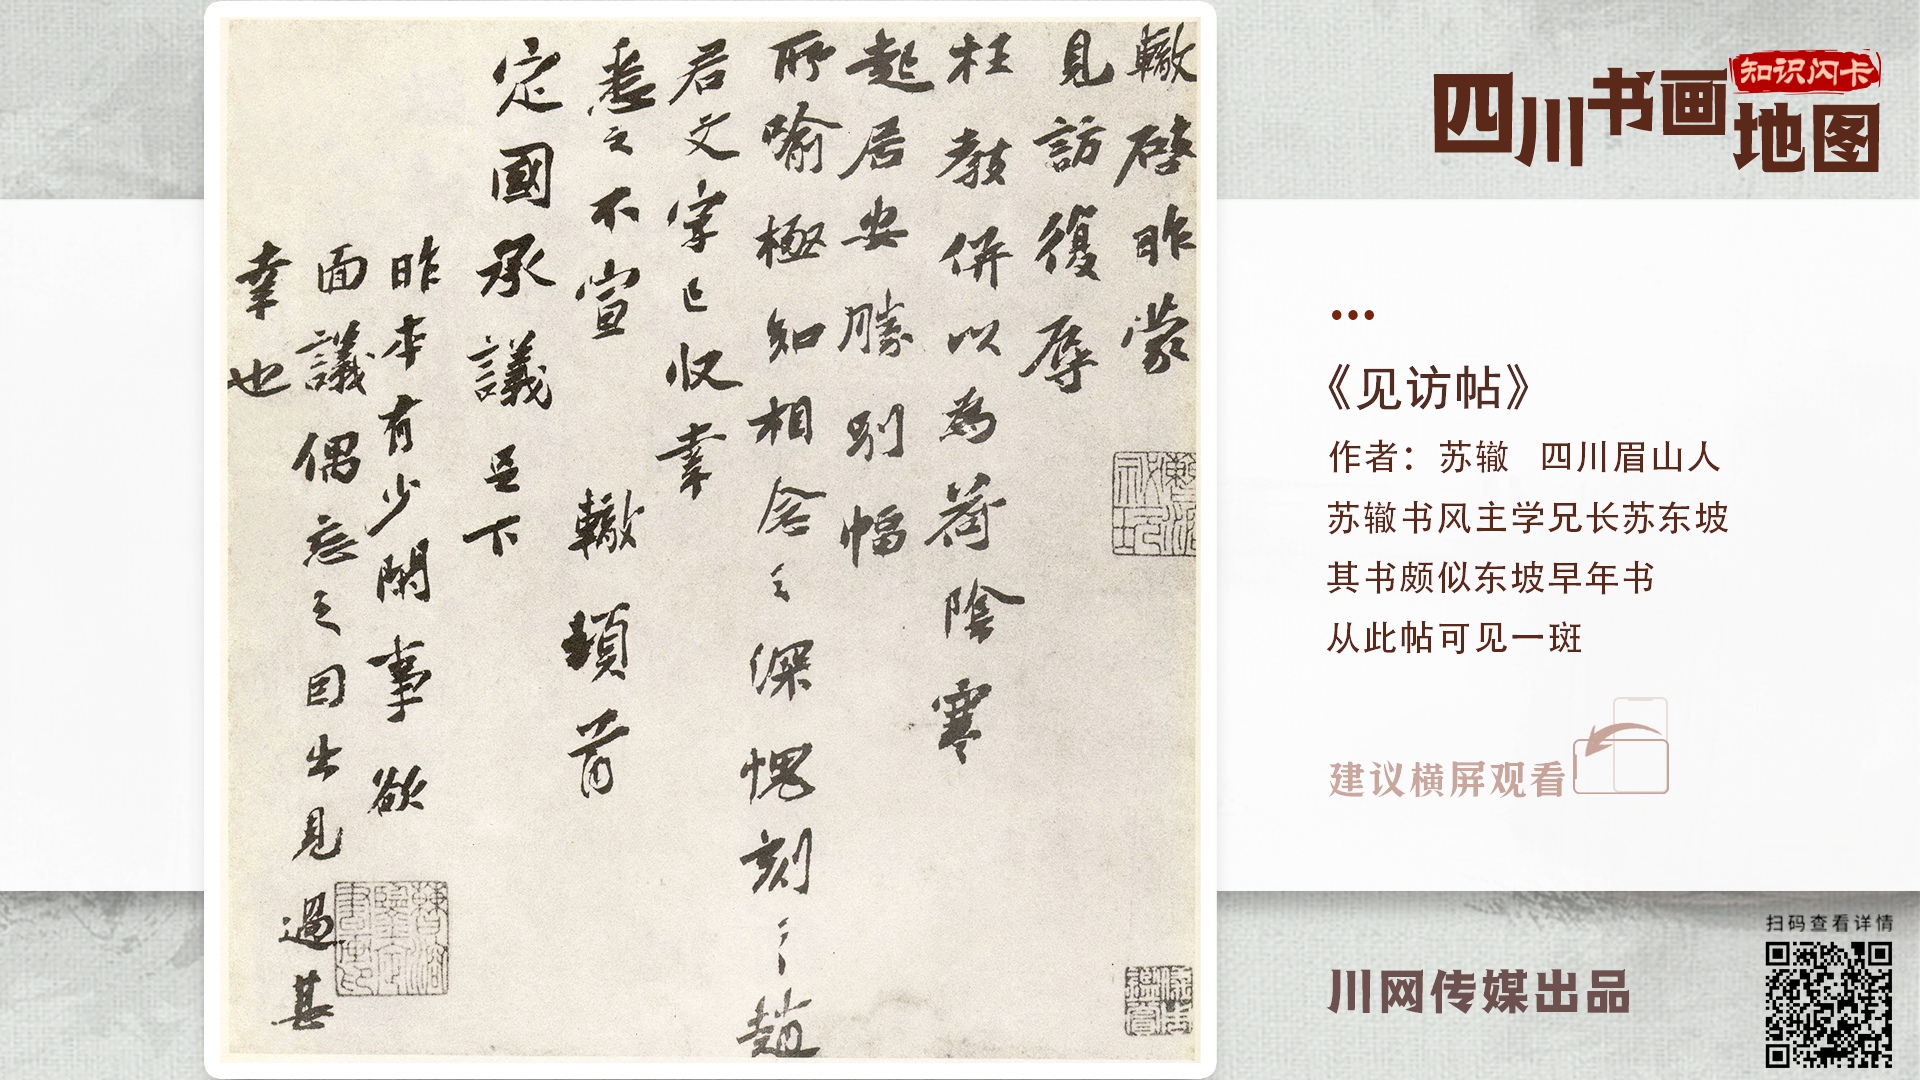 轍啓昨蒙
見訪復辱
枉教併以為荷陰寒
起居安勝別幅
所喻極知相念之深愧刻〻趙
君文字已收幸
悉之不宣
轍頓首
定國承議足下
昨本有少閑事欲
面議偶忘之因出見過甚
幸也
四川书画地图
知识闪卡
...
《见访帖》
作者：苏辙 四川眉山人
苏辙书风主学兄长苏东坡
其书颇似东坡早年书
从此帖可见一斑
建议横屏观看
川网传媒出品
扫码查看详情